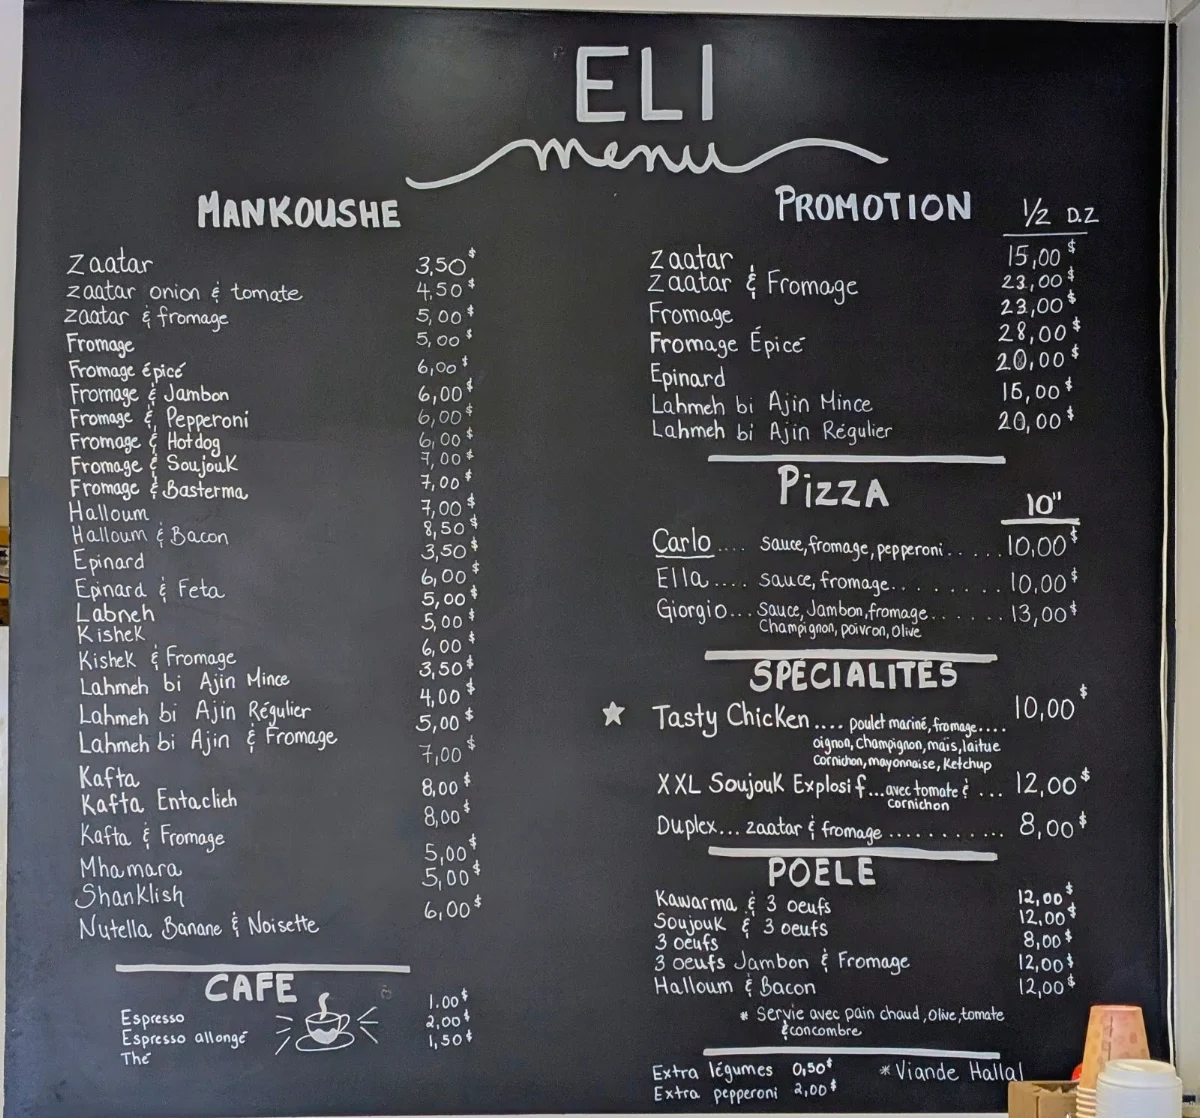 ELI
menu
MANKOUSHE
Zaatar 3,50$
Zaatar onion & tomate 4,50$
Zaatar & fromage 5,00$
Fromage 5,00$
Fromage épicé 6,00$
Fromage & Jambon 6,00$
Fromage & Pepperoni 6,00$
Fromage & Hotdog 6,00$
Fromage & Soujouk 7,00$
Fromage & Basterma 7,00$
Halloum 7,00$
Halloum & Bacon 8,50$
Epinard 3,50$
Epinard & Feta 6,00$
Labneh 5,00$
Kishek 5,00$
Kishek & Fromage 6,00$
Lahmeh bi Ajin Mince 3,50$
Lahmeh bi Ajin Régulier 4,00$
Lahmeh bi Ajin & Fromage 5,00$
Kafta 7,00$
Kafta Entaclich 8,00$
Kafta & Fromage 8,00$
Mhamara 5,00$
Shanklish 5,00$
Nutella Banane & Noisette 6,00$
CAFE
Espresso 1.00$
Espresso allongé 2,00$
Thé 1,50$
PROMOTION 1/2 D.Z
Zaatar 15,00$
Zaatar & Fromage 23,00$
Fromage 23,00$
Fromage Épicé 28,00$
Epinard 20,00$
Lahmeh bi Ajin Mince 15,00$
Lahmeh bi Ajin Régulier 20,00$
PIZZA 10"
Carlo.... Sauce, fromage, pepperoni..... 10,00$
Ella.... Sauce, fromage........ 10,00$
Giorgio... Sauce, Jambon, fromage...... 13,00$
Champignon, poivron, Olive
SPÉCIALITÉS
Tasty Chicken.... poulet mariné, fromage.... 10,00$
oignon, champignon, maïs, laitue
cornichon, mayonnaise, Ketchup
XXL Soujouk Explosif...avec tomate & ... 12,00$
cornichon
Duplex... zaatar & fromage........... 8,00$
POELE
Kawarma & 3 oeufs 12,00$
Soujouk & 3 oeufs 12,00$
3 oeufs 8,00$
3 oeufs Jambon & Fromage 12,00$
Halloum & Bacon 12,00$
* Servie avec pain chaud, olive, tomate
& concombre
Extra légumes 0,50$ * Viande Hallal
Extra pepperoni 2,00$